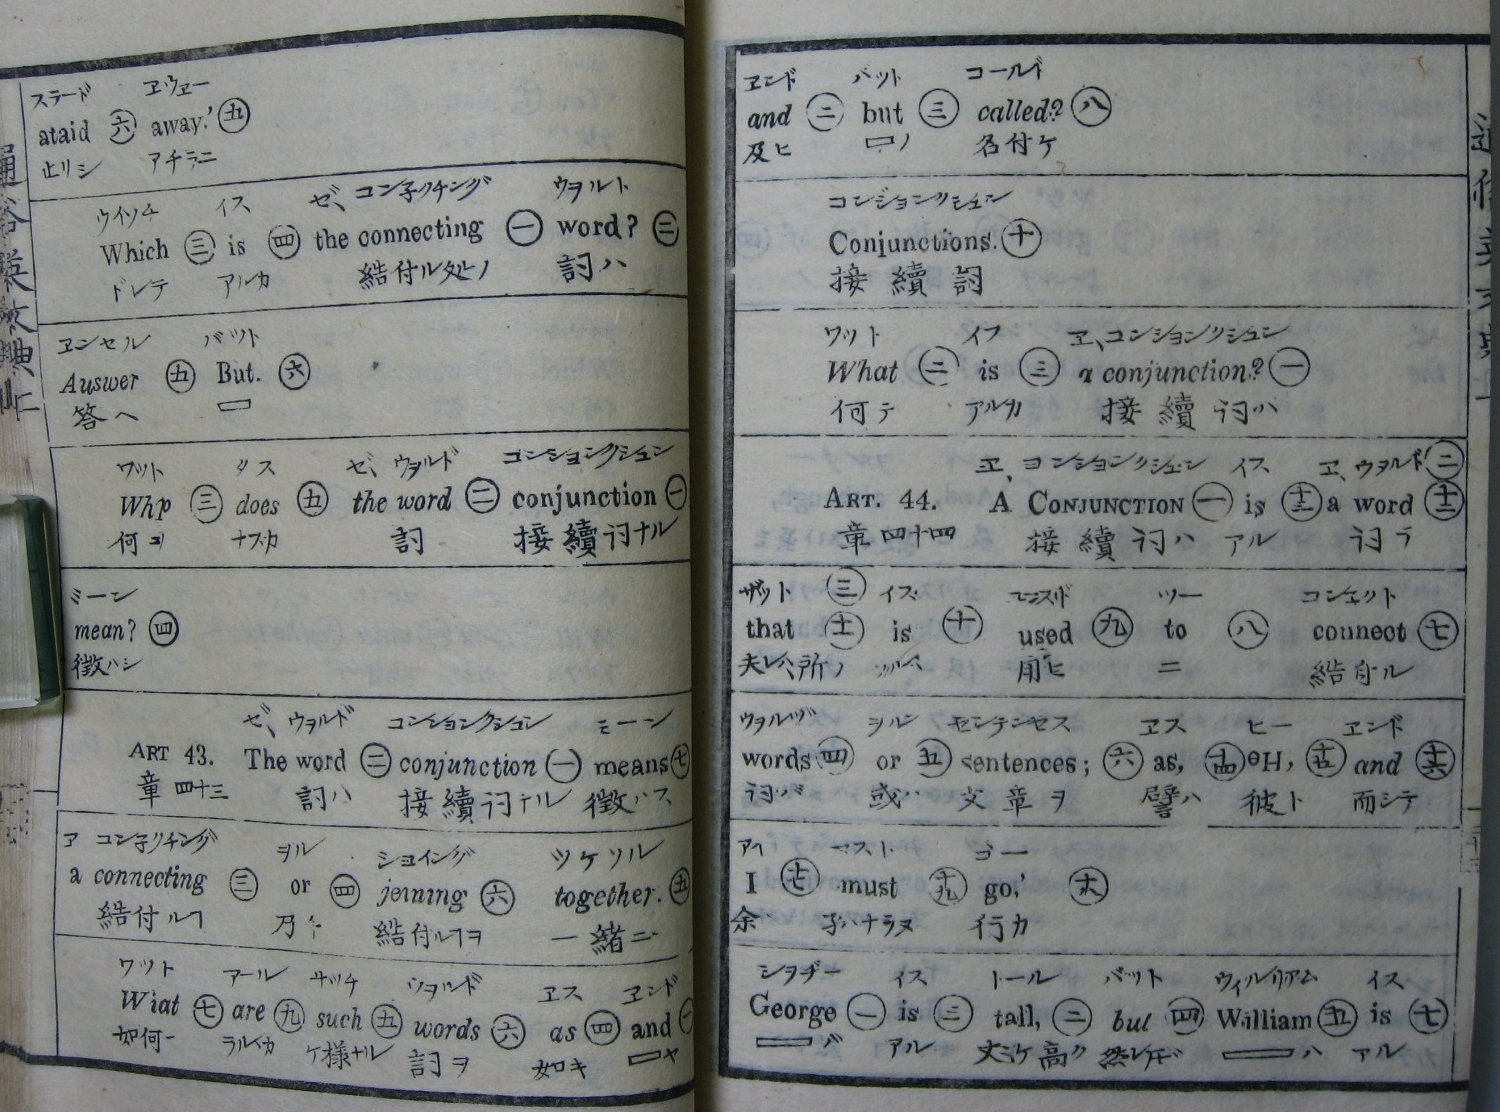 スラード ヱウエー
ataid 六 away.' 五
止リシ アチラニ
ウイツチ イス ゼ、コン子クチング ウヲルト
Which 三 is 四 the connecting 一 word? 二
ドレテ アルカ 結付ル処ヒノ 詞ハ
ヱンセル バット
Auswer 五 But. 六
答ヘ
ワット ダス ゼ、ウヲルド コンションクシュン
Whp 三 does 五 the word 二 conjunction 一
何ヲ ナスカ 詞 接續詞ナル
ミーン
mean? 四
徴ハシ
ゼ、ウヲルド コンションクション ミーン
ART 43. The word 二 conjunction 一 means 七
章 四十三 詞ハ 接續詞ナル 徴ハス
ア コン子クチング ヲル ショイング ツケソル
a connecting 三 or 四 jeining 六 together. 五
結付ルヿ 乃至 結付ルヿヲ 一緒ニ
ワット アール サッチ ウヲルド ヱス ヱンド
Wiat 七 are 九 such 五 words 六 as 四 and 一
如何 ケ様ナル 詞ヲ 如キ ヤ
ヱンド バット コールド
and 二 but 三 called? 八
及ヒ ノ 名付ケ
コンジョンクシュン
Conjunctions. 十
接續詞
ワット イフ ヱ、コンションクシュン
What 二 is 三 a conjunction? 一
何テ アルカ 接續詞ハ
ヱ、コンションクシュン イス ヱ、ウヲルド 二
ART. 44. A CONJUNCTION 一 is 十三 a word 十二
章 四十四 接續詞ハ アル 詞テ
ザット 三 イス ユースド ツー コンエクト
that 十一 is 十 used 九 to 八 counect 七
夫レハ所ノ 用ヒ ニ 結付ル
ウヲルヅ ヲルン センテンセス ヱス ヒー ヱンド
words 四 or 五 sentences; 六 as, 十四 eH, 十五 and 十六
詞ハ 或ハ 文章ヲ 譬ハ 彼ト 而シテ
アイ マスト ゴー
I 十七 must 十九 go,' 十八
余 子ハナラヌ 行カ
シヲヂー イス トール バット ウィルリアム イス
George 一 is 三 tall, 二 but 四 William 五 is 七
ハ アル 丈ミケ高ク 然レ𪜈 ハ アル